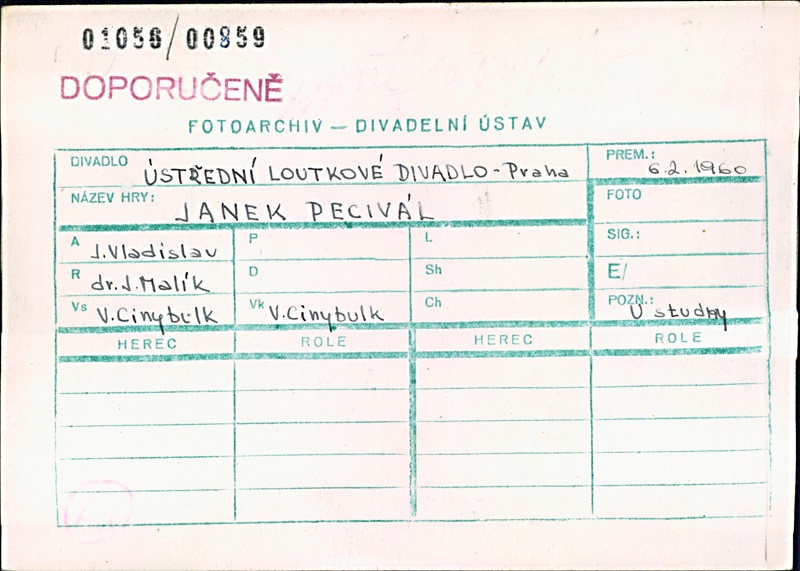 01056/00859
DOPORUČENĚ
FOTOARCHIV — DIVADELNÍ ÚSTAV
DIVADLO ÚSTŘEDNÍ LOUTKOVÉ DIVADLO - Praha
PREM.: 6.2.1960
NÁZEV HRY: JANEK PECIVÁL
FOTO
A J. Vladislav
P
L
SIG.:
R dr. J. Malík
D
Sh
E/
Vs V. Cinybulk
Vk V. Cinybulk
Ch
POZN.: U studny
HEREC ROLE HEREC ROLE